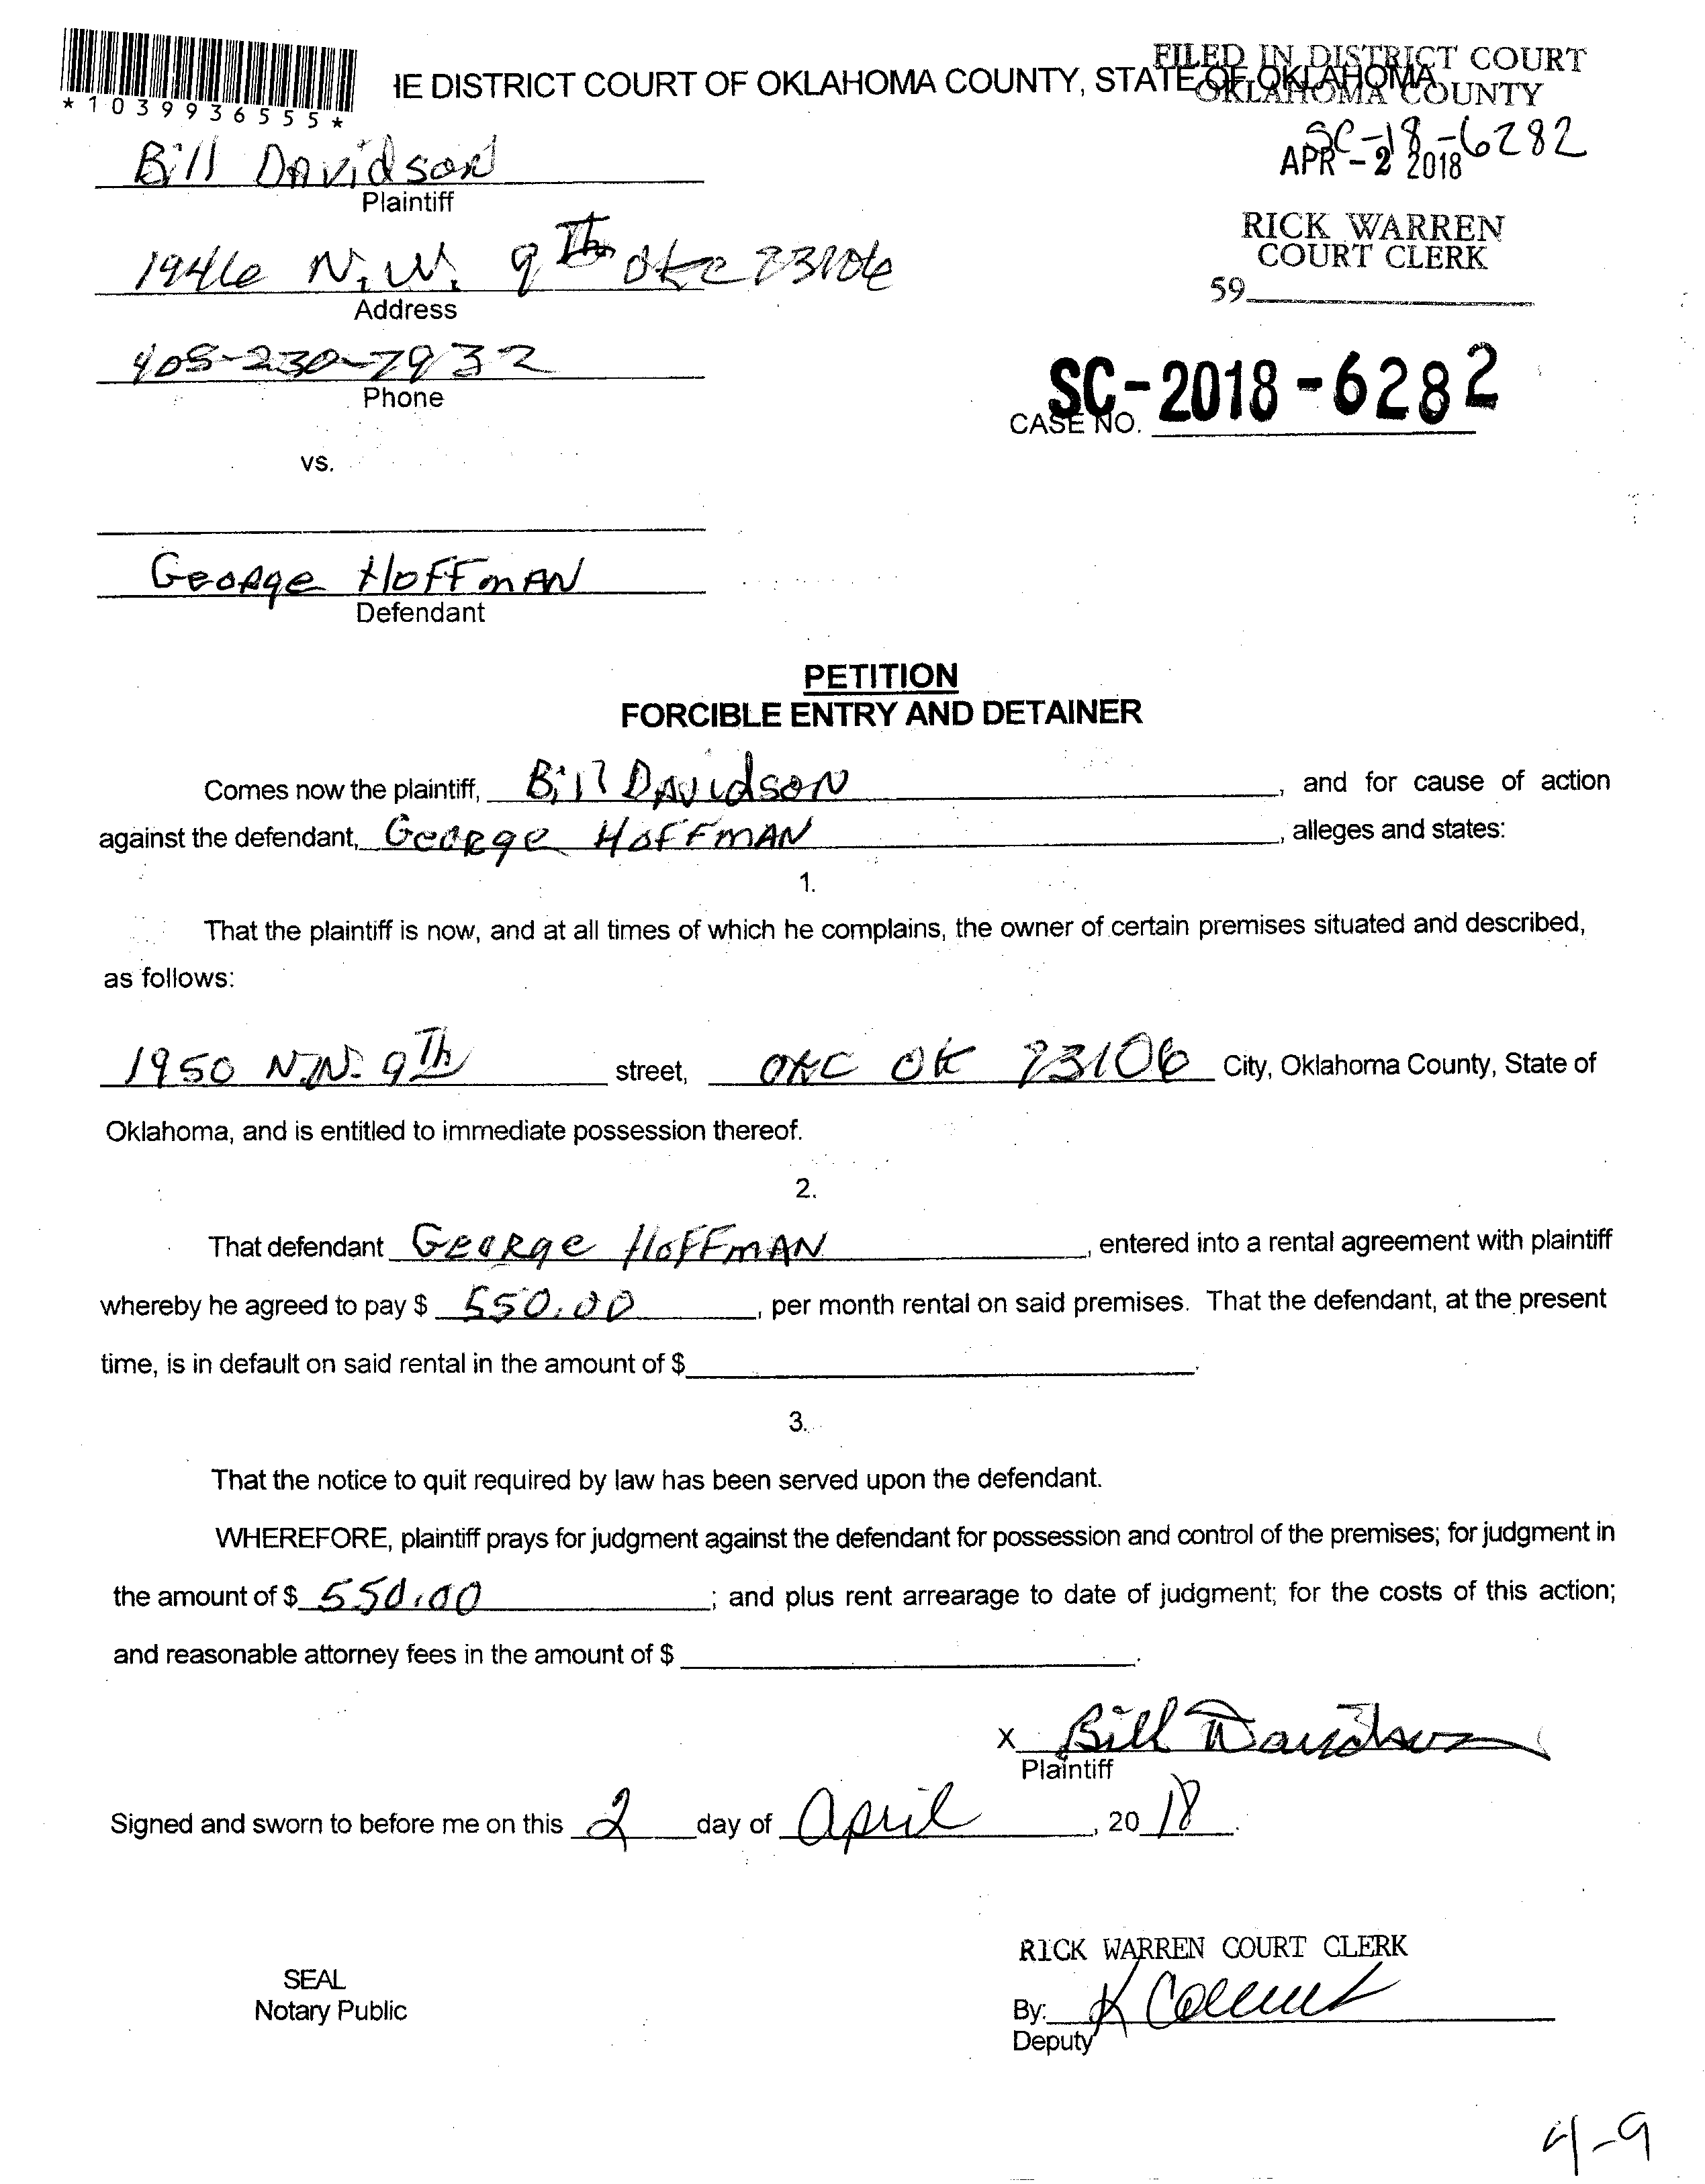 *1039936555*
IE DISTRICT COURT OF OKLAHOMA COUNTY, STATE OF OKLAHOMA
FILED IN DISTRICT COURT
OKLAHOMA COUNTY
SC-18-6282
APR - 2 2018
Bill Davidson
Plaintiff
RICK WARREN
COURT CLERK
1946 N.W. 9Th OKC 73106
Address
59
405-230-7932
Phone
SC-2018-6282
CASE NO.
vs.
George Hoffman
Defendant
PETITION
FORCIBLE ENTRY AND DETAINER
Comes now the plaintiff, Bill Davidson, and for cause of action
against the defendant, George Hoffman, alleges and states:
1.
That the plaintiff is now, and at all times of which he complains, the owner of certain premises situated and described,
as follows:
1950 N.W. 9Th street, OKC OK 73106 City, Oklahoma County, State of
Oklahoma, and is entitled to immediate possession thereof.
2.
That defendant George Hoffman, entered into a rental agreement with plaintiff
whereby he agreed to pay $ 550.00, per month rental on said premises. That the defendant, at the present
time, is in default on said rental in the amount of $.
3.
That the notice to quit required by law has been served upon the defendant.
WHEREFORE, plaintiff prays for judgment against the defendant for possession and control of the premises; for judgment in
the amount of $ 550.00; and plus rent arrearage to date of judgment; for the costs of this action;
and reasonable attorney fees in the amount of $.
X Bill Davidson
Plaintiff
Signed and sworn to before me on this 2 day of April, 2018.
RICK WARREN COURT CLERK
SEAL
Notary Public
By: K
Deputy
4-9